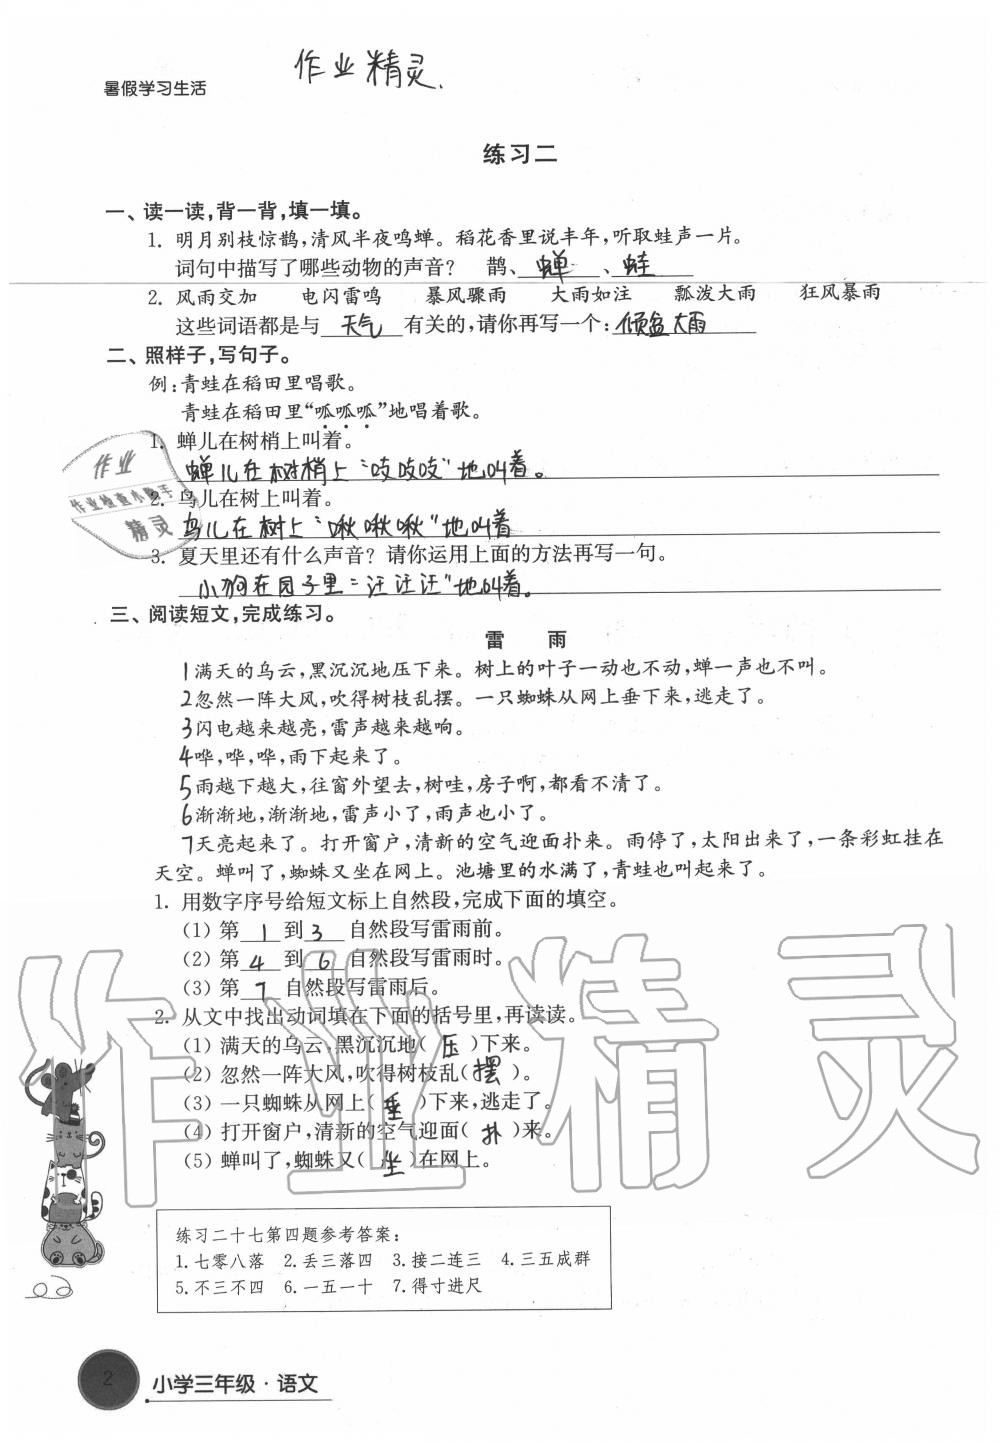 暑假学习生活
作业精灵.
练习二
一、读一读,背一背,填一填。
1. 明月别枝惊鹊,清风半夜鸣蝉。稻花香里说丰年,听取蛙声一片。
词句中描写了哪些动物的声音? 鹊、 蝉 、 蛙
2. 风雨交加 电闪雷鸣 暴风骤雨 大雨如注 瓢泼大雨 狂风暴雨
这些词语都是与 天气 有关的,请你再写一个: 倾盆大雨
二、照样子,写句子。
例:青蛙在稻田里唱歌。
青蛙在稻田里“呱呱呱”地唱着歌。
1. 蝉儿在树梢上叫着。
蝉儿在树梢上“吱吱吱”地叫着。
2. 鸟儿在树上叫着。
鸟儿在树上“啾啾啾”地叫着
3. 夏天里还有什么声音? 请你运用上面的方法再写一句。
小狗在园子里“汪汪汪”地叫着。
三、阅读短文,完成练习。
雷 雨
1满天的乌云,黑沉沉地压下来。树上的叶子一动也不动,蝉一声也不叫。
2忽然一阵大风,吹得树枝乱摆。一只蜘蛛从网上垂下来,逃走了。
3闪电越来越亮,雷声越来越响。
4哗,哗,哗,雨下起来了。
5雨越下越大,往窗外望去,树哇,房子啊,都看不清了。
6渐渐地,渐渐地,雷声小了,雨声也小了。
7天亮起来了。打开窗户,清新的空气迎面扑来。雨停了,太阳出来了,一条彩虹挂在
天空。蝉叫了,蜘蛛又坐在网上。池塘里的水满了,青蛙也叫起来了。
1. 用数字序号给短文标上自然段,完成下面的填空。
(1) 第 1 到 3 自然段写雷雨前。
(2) 第 4 到 6 自然段写雷雨时。
(3) 第 7 自然段写雷雨后。
2. 从文中找出动词填在下面的括号里,再读读。
(1) 满天的乌云,黑沉沉地( 压 )下来。
(2) 忽然一阵大风,吹得树枝乱( 摆 )。
(3) 一只蜘蛛从网上( 垂 )下来,逃走了。
(4) 打开窗户,清新的空气迎面( 扑 )来。
(5) 蝉叫了,蜘蛛又( 坐 )在网上。
练习二十七第四题参考答案:
1.七零八落 2.丢三落四 3.接二连三 4.三五成群
5.不三不四 6.一五一十 7.得寸进尺
2
小学三年级·语文
作业
作业检查小助手
精灵
作业精灵